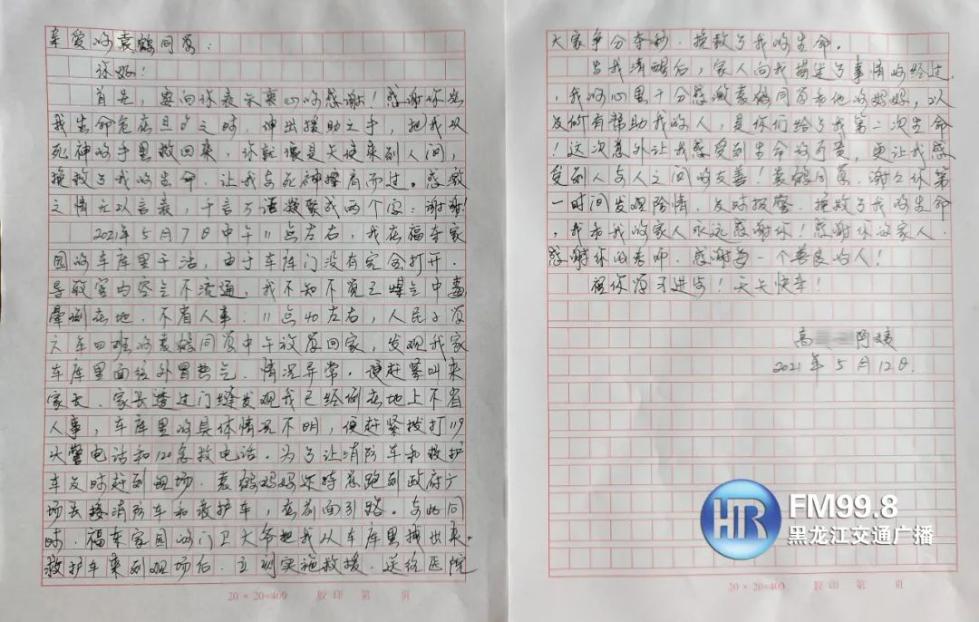 亲爱的袁鹤同学：
你好！
首先，要向你表示衷心的感谢！感谢你在
我生命危在旦夕之时，伸出援助之手，把我从
死神的手里救回来，你就像是天使来到人间，
挽救了我的生命，让我与死神擦肩而过。感激
之情无以言表，千言万语凝聚成两个字：谢谢！
2021年5月7日中午11点左右，我在福东家
园的车库里干活，由于车库门没有完全打开，
导致室内空气不流通，我不知不觉已煤气中毒
晕倒在地，不省人事。11点40左右，人民小学
六年四班的袁鹤同学中午放学回家，发现我家
车库里面往外冒热气，情况异常，便赶紧叫来
家长，家长透过门缝发现我已经倒在地上不省
人事，车库里的具体情况不明，便赶紧拨打119
火警电话和120急救电话。为了让消防车和救护
车及时赶到现场，袁鹤妈妈还特意跑到政府广
场去接消防车和救护车，在前面引路。与此同
时，福东家园的门卫大爷把我从车库里拽出来。
救护车来到现场后，立刻实施救援，送往医院
20×20=400 胶印 第 页
大家争分夺秒，挽救了我的生命。
当我清醒后，家人向我描述了事情的经过
，我的心里十分感激袁鹤同学和他的妈妈，以
及所有帮助我的人，是你们给了我第二次生命
！这次意外让我感受到生命的可贵，更让我感
受到人与人之间的友善！袁鹤同学，谢谢你第
一时间发现险情，及时报警，挽救了我的生命
，我和我的家人永远感谢你！感谢你的家人，
感谢你的老师，感谢每一个善良的人！
祝你学习进步！天天快乐！
高
2021年5月12日
20×20=400 胶印 第 页
HR
FM99.8
黑龙江交通广播